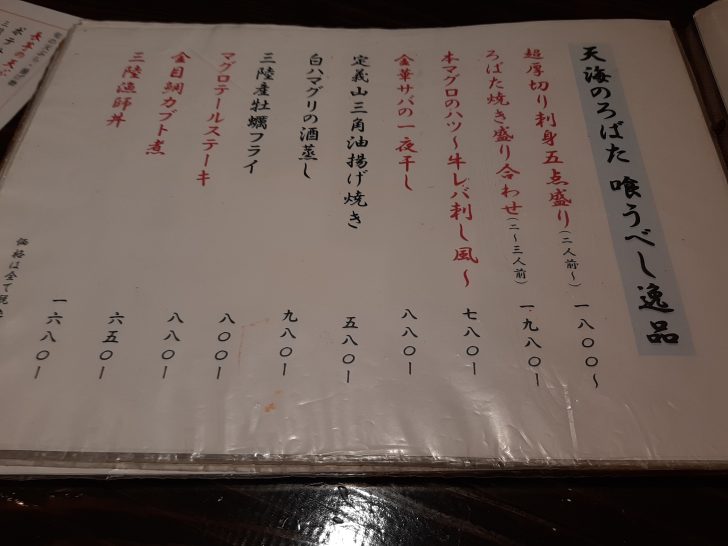 天海のろばた 喰うべし逸品
超厚切り刺身五点盛り(二人前〜) 一八〇〇〜
ろばた焼き盛り合わせ(二〜三人前) 一九八〇ー
本マグロのハツ〜牛レバ刺し風〜 七八〇ー
金華サバの一夜干し 八八〇ー
定義山三角油揚げ焼き 五八〇ー
白ハマグリの酒蒸し 九八〇ー
三陸産牡蠣フライ 八〇〇ー
マグロテールステーキ 八八〇ー
金目鯛カブト煮 六五〇ー
三陸漁師丼 一六八〇ー
価格は全て税